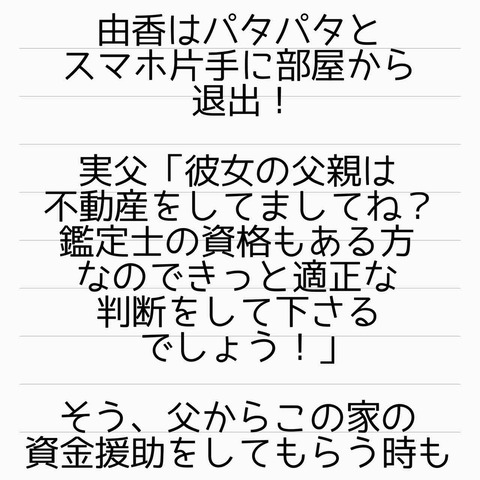 由香はパタパタと
スマホ片手に部屋から
退出！
実父「彼女の父親は
不動産をしてましてね？
鑑定士の資格もある方
なのできっと適正な
判断をして下さる
でしょう！」
そう、父からこの家の
資金援助をしてもらう時も